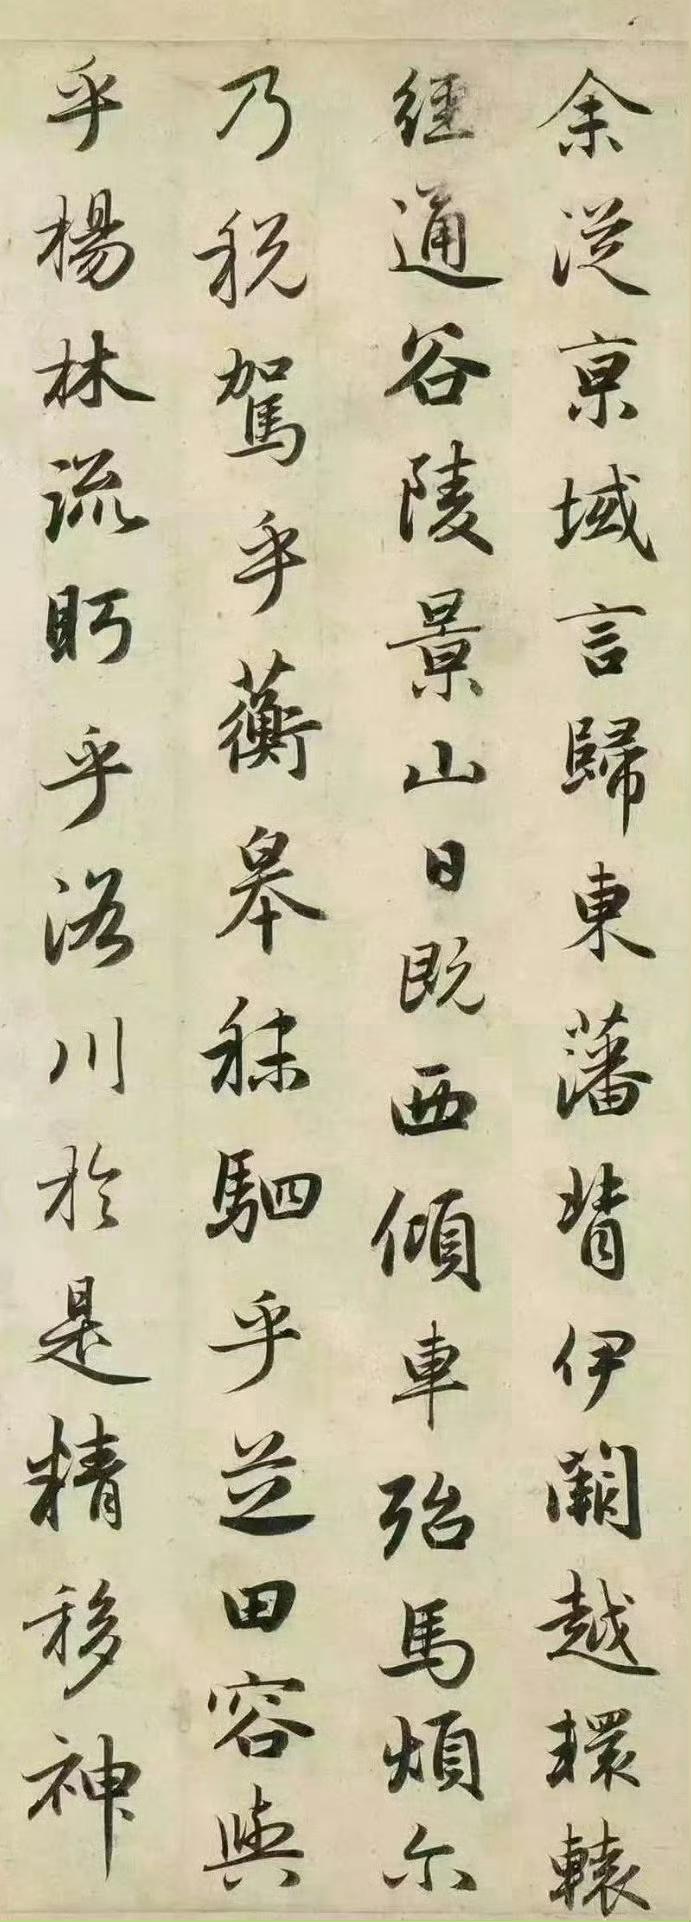 余從京域言歸東藩背伊闕越轘轅
經通谷陵景山日既西傾車殆馬煩尒
乃稅駕乎蘅皋秣駟乎芝田容與
乎楊林流眄乎洛川於是精移神